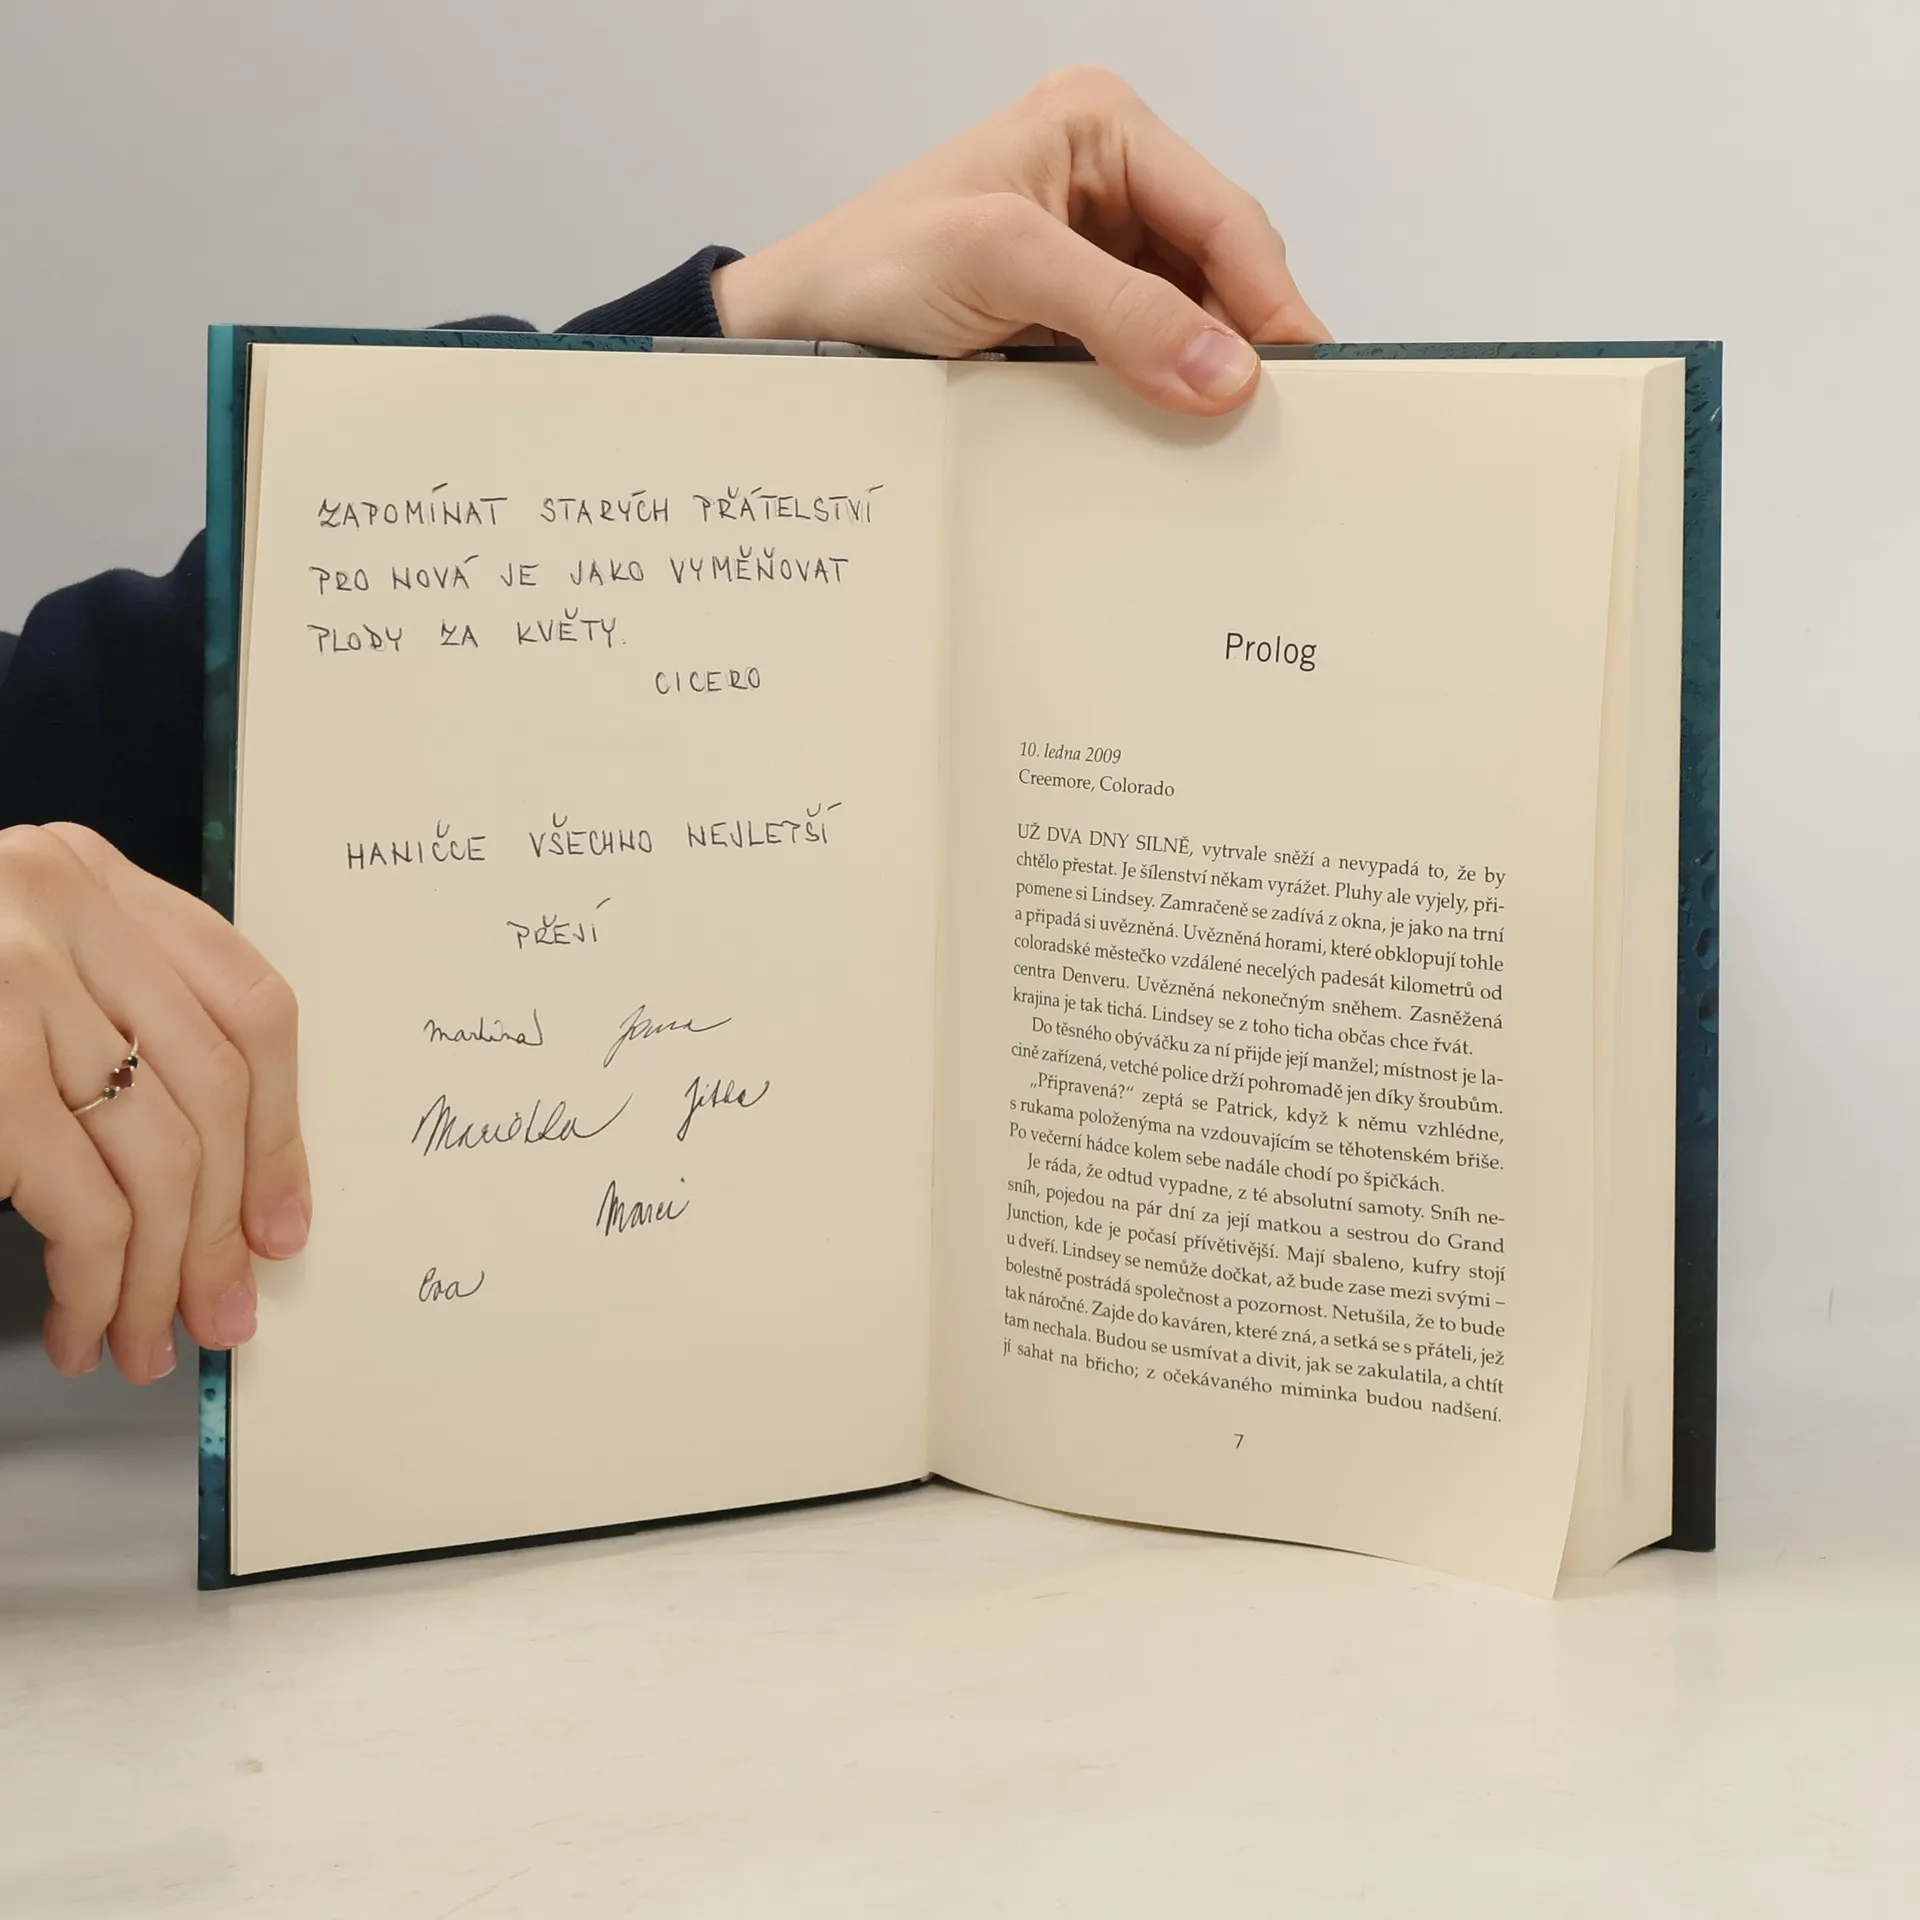 ZAPOMÍNAT STARÝCH PŘÁTELSTVÍ
PRO NOVÁ JE JAKO VYMĚŇOVAT
PLODY ZA KVĚTY.
CICERO
HANIČCE VŠECHNO NEJLEPŠÍ
PŘEJÍ
Martina Jana
Jitka
Marci
Eva
Prolog
10. ledna 2009
Creemore, Colorado
UŽ DVA DNY SILNĚ, vytrvale sněží a nevypadá to, že by
chtělo přestat. Je šílenství někam vyrážet. Pluhy ale vyjely, při-
pomene si Lindsey. Zamračeně se zadívá z okna, je jako na trní
a připadá si uvězněná. Uvězněná horami, které obklopují tohle
coloradské městečko vzdálené necelých padesát kilometrů od
centra Denveru. Uvězněná nekonečným sněhem. Zasněžená
krajina je tak tichá. Lindsey se z toho ticha občas chce řvát.
Do těsného obýváčku za ní přijde její manžel; místnost je la-
cině zařízená, vetché police drží pohromadě jen díky šroubům.
„Připravená?“ zeptá se Patrick, když k němu vzhlédne,
s rukama položenýma na vzdouvajícím se těhotenském břiše.
Po večerní hádce kolem sebe nadále chodí po špičkách.
Je ráda, že odtud vypadne, z té absolutní samoty. Sníh ne-
sníh, pojedou na pár dní za její matkou a sestrou do Grand
Junction, kde je počasí přívětivější. Mají sbaleno, kufry stojí
u dveří. Lindsey se nemůže dočkat, až bude zase mezi svými –
bolestně postrádá společnost a pozornost. Netušila, že to bude
tak náročné. Zajde do kaváren, které zná, a setká se s přáteli, jež
tam nechala. Budou se usmívat a divit, jak se zakulatila, a chtít
jí sahat na břicho; z očekávaného miminka budou nadšení.
7